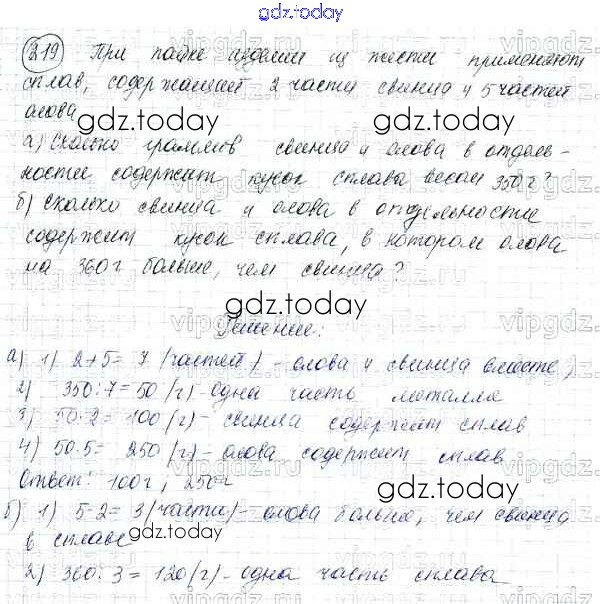 gdz.today
219 При пайке изделий из жести применяют
сплав, содержащий 2 части свинца и 5 частей
олова
gdz.today gdz.today
а) Сколько граммов свинца и олова в отдель-
ности содержит кусок сплава весом 350 г?
б) сколько свинца и олова в отдельности
содержит кусок сплава, в котором олова
на 360 г больше, чем свинца?
gdz.today
Решение:
а) 1) 2+5= 7 (частей) - олова и свинца вместе)
2) 350:7=50 (г) - одна часть металла
gdz.today
3) 50·2=100 (г) - свинца содержит сплав
4) 50·5= 250 (г) - олова содержит сплав
Ответ: 100г, 250г
gdz.today
б) 1) 5-2= 3 (части) - олова больше, чем свинца
в сплаве
gdz.today
2) 360:3=120 (г) - одна часть сплава